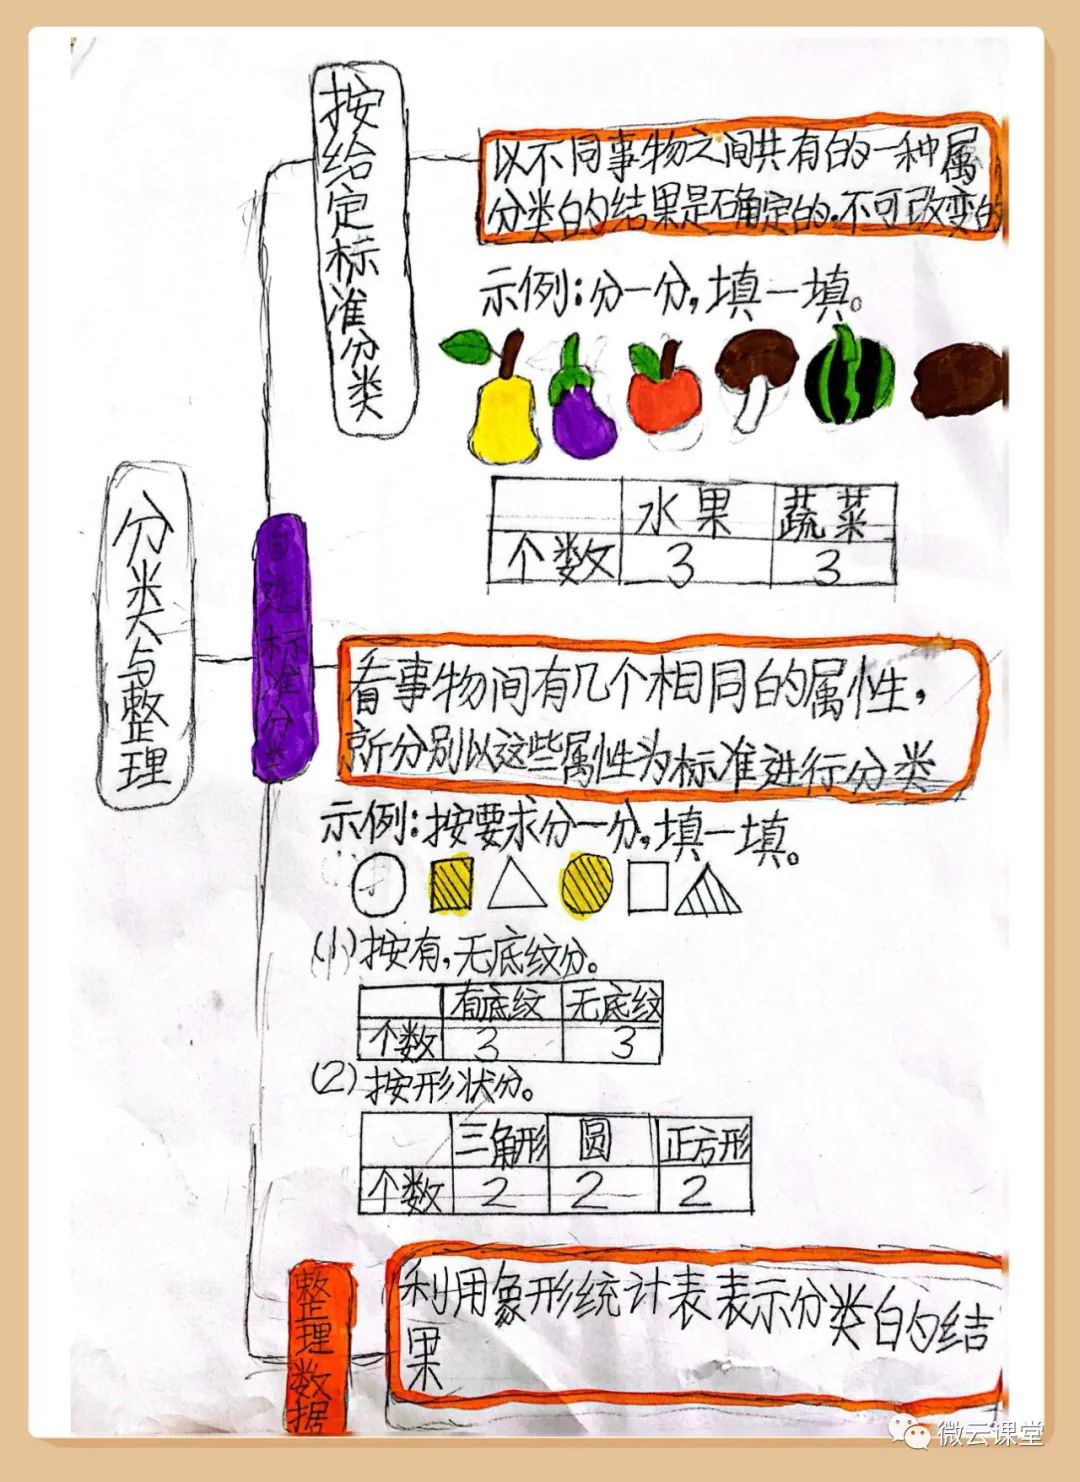 分类与整理
按给定标准分类
以不同事物之间共有的一种属
分类的结果是确定的.不可改变的
示例:分一分,填一填。
水果 蔬菜
个数 3 3
自选标准分类
看事物间有几个相同的属性,
就分别以这些属性为标准进行分类
示例:按要求分一分,填一填。
(1)按有,无底纹分。
有底纹 无底纹
个数 3 3
(2)按形状分。
三角形 圆 正方形
个数 2 2 2
整理数据
利用象形统计表表示分类的结
果
微云课堂